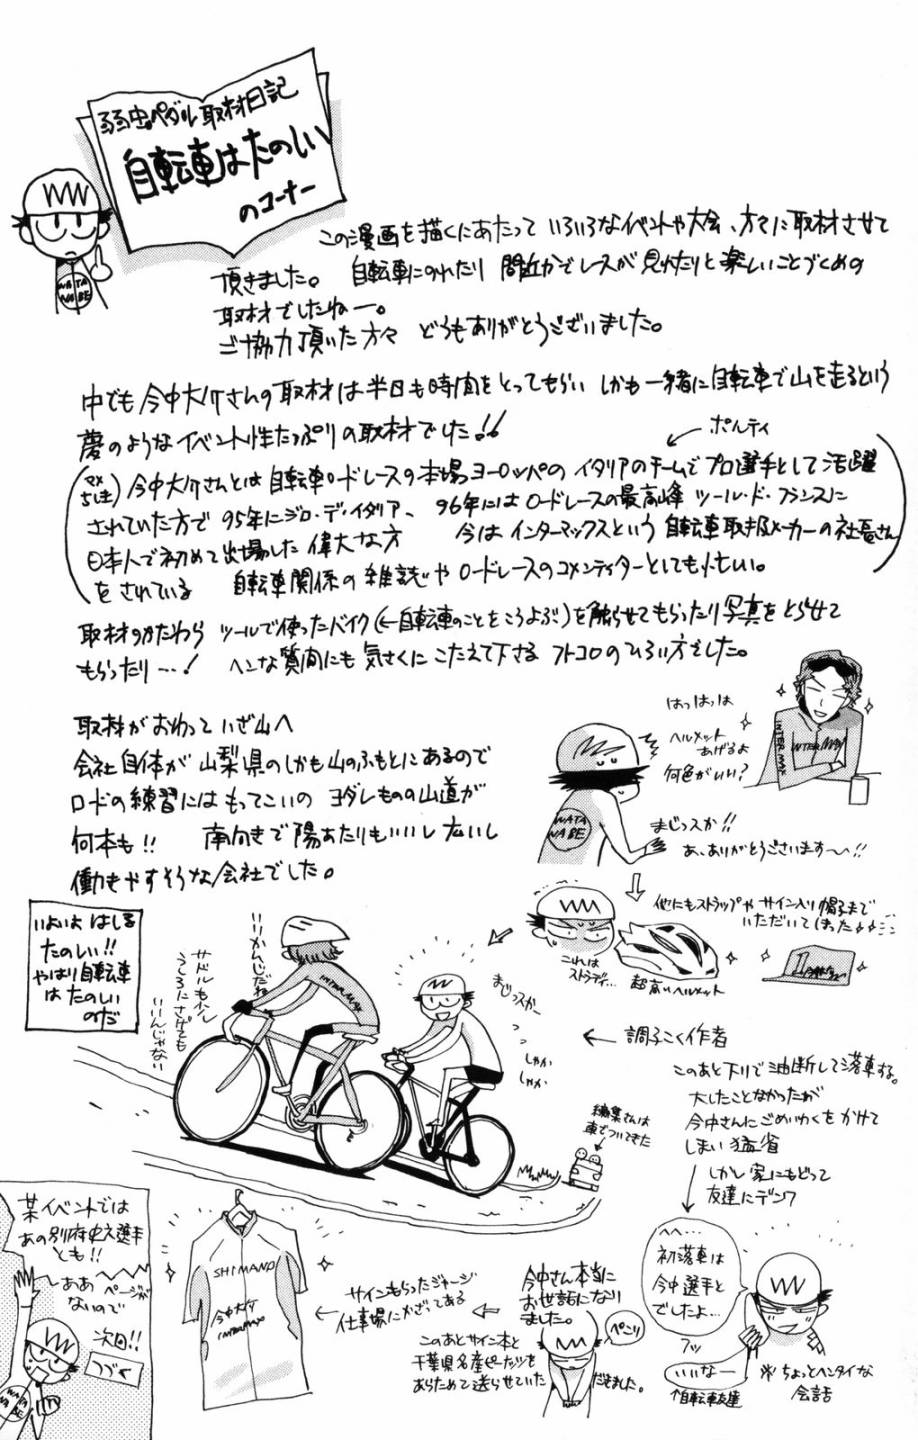 弱虫ペダル取材日記
自転車はたのしい
のコーナー
WATA
NABE
この漫画を描くにあたって いろいろなイベントや大会、方々に取材させて
頂きました。 自転車にのれたり 間近かでレースが見れたりと楽しいことづくめの
取材でしたねー。
ご協力頂いた方々 どうもありがとうございました。
中でも今中大介さんの取材は半日も時間をとってもらい しかも一緒に自転車で山を走るという
夢のようなイベント性たっぷりの取材でした!!
←ポルティ
(マメちしき) 今中大介さんとは自転車ロードレースの本場ヨーロッパのイタリアのチームでプロ選手として活躍
されていた方で 95年にジロ・デ・イタリア、 96年にはロードレースの最高峰 ツール・ド・フランスに
日本人で初めて出場した偉大な方 今はインターマックスという自転車取扱メーカーの社長さん
をされている 自転車関係の雑誌やロードレースのコメンテイターとしても忙しい。
取材のかたわら ツールで使ったバイク(←自転車のことをこうよぶ)を触らせてもらったり写真をとらせて
もらったり…! ヘンな質問にも気さくにこたえて下さる フトコロのひろい方でした。
はっはっは
ヘルメット
あげるよ
何色がいい?
INTERMAX
INTERMAX
取材がおわって いざ山へ
会社自体が山梨県のしかも山のふもとにあるので
ロードの練習にはもってこいの ヨダレものの山道が
何本も!! 南向きで陽あたりもいいし広いし
働きやすそうな会社でした。
WATA
NABE
まじっスか!!
あ、ありがとうございます〜!!
⇩
他にもストラップやサイン入り帽子まで
いただいてしまった
これは
ストラディ…
超高いヘルメット
いよいよ はしる
たのしい!!
やはり自転車
は たのしい
のだ
いいかんじだね
サドルもう少し
うしろにさげても
いいんじゃない
INTERMAX
まじっスかー
しゃか
しゃか
← 調子こく作者
このあと下りで油断して落車する。
大したことなかったが
今中さんにごめいわくをかけて
しまい猛省
しかし家にもどって
友達にデンワ
編集さんは
車でついてきた
へへ…
初落車は
今中選手と
でしたよ…
フッ
いいなー
↑自転車友達
※ちょっとヘンタイな
会話
今中さん本当に
お世話になり
ました。
ペこり
このあとサイン本と
千葉県名産ピーナッツを
あらためて送らせていただきました。
サインもらったジャージ
←仕事場にかざってある
SHIMANO
今中大介
INTERMAX
某イベントでは
あの別府史之選手
とも!!
ああ ページが
ないので
次回!!
つづく
WATA
NABE